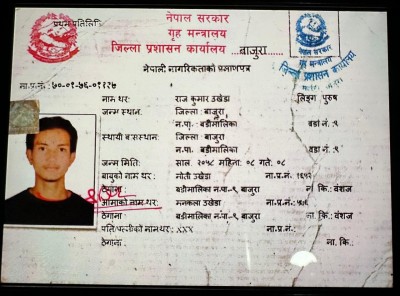 प्रथम प्रतिलिपि
नेपाल सरकार
गृह मन्त्रालय
जिल्ला प्रशासन कार्यालय ...बाजुरा...
नेपाली नागरिकताको प्रमाणपत्र
नेपाल सरकार
गृह मन्त्रालय
जिल्ला प्रशासन कार्यालय
ना.प्र.नं.: ७०-०१-७६-०११२७
नाम थर: राज कुमार उखेडा लिङ्ग पुरुष
जन्म स्थान: जिल्ला: बाजुरा
न.पा.- बडीमालिका वडा नं. ९
स्थायी बासस्थान: जिल्ला: बाजुरा
न.पा.- बडीमालिका वडा नं. ९
जन्म मिति: साल: २०५८ महिना: ०८ गते: ०८
बाबुको नाम थर: नौती उखेडा ना.प्र.नं.:
ठेगाना: बडीमालिका न.पा-९ बाजुरा ना. कि.: वंशज
आमाको नाम थर: मनकला उखेडा ना.प्र.नं.:
ठेगाना: बडीमालिका न.पा-९ बाजुरा ना. कि.: वंशज
पति/पत्नीको नाम थर: xxx ना.प्र.नं.:
ठेगाना: ना. कि.: